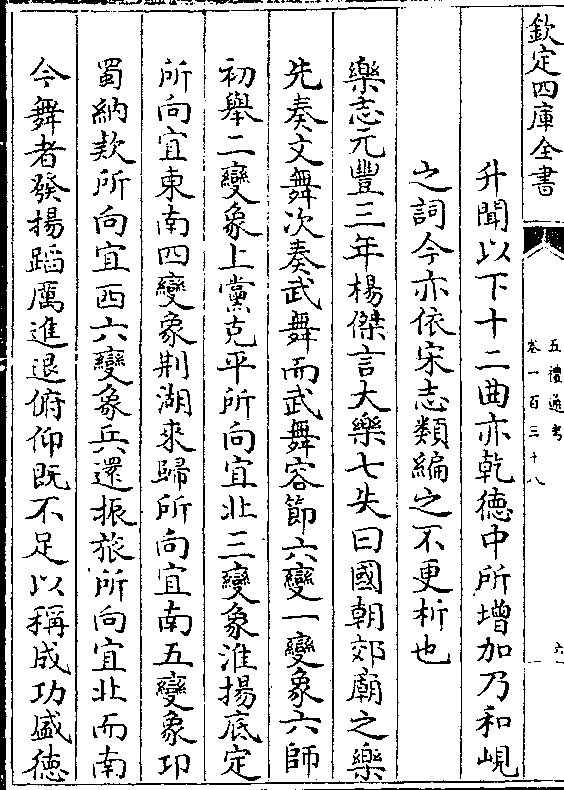 欽定四庫全書
五禮通考
卷一百三十八
六
升聞以下十二曲亦乾德中所增加乃和峴
之詞今亦依宋志類編之不更析也
樂志元豐三年楊傑言大樂七失曰國朝郊廟之樂
先奏文舞次奏武舞而武舞容節六變一變象六師
初舉二變象上黨克平所向宜北三變象淮揚底定
所向宜東南四變象荆湖來歸所向宜南五變象卭
蜀納欵所向宜西六變象兵還振旅所向宜北而南
今舞者發揚蹈厲進退俯仰既不足以稱成功盛德